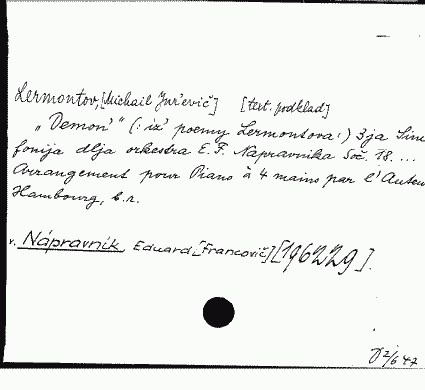 Lermontov, [Michail Jur'evič] [text. podklad]
"Demon" (: iz poemy Lermontova :) 3ja Sim
fonija dlja orkestra E. F. Napravnika Soč. 18. ...
Arrangement pour Piano à 4 mains par l'Auteu
Hambourg, b. r.
v. Nápravník, Eduard, [Francovič] [196229].